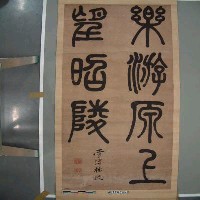 樂游原上
望昭陵